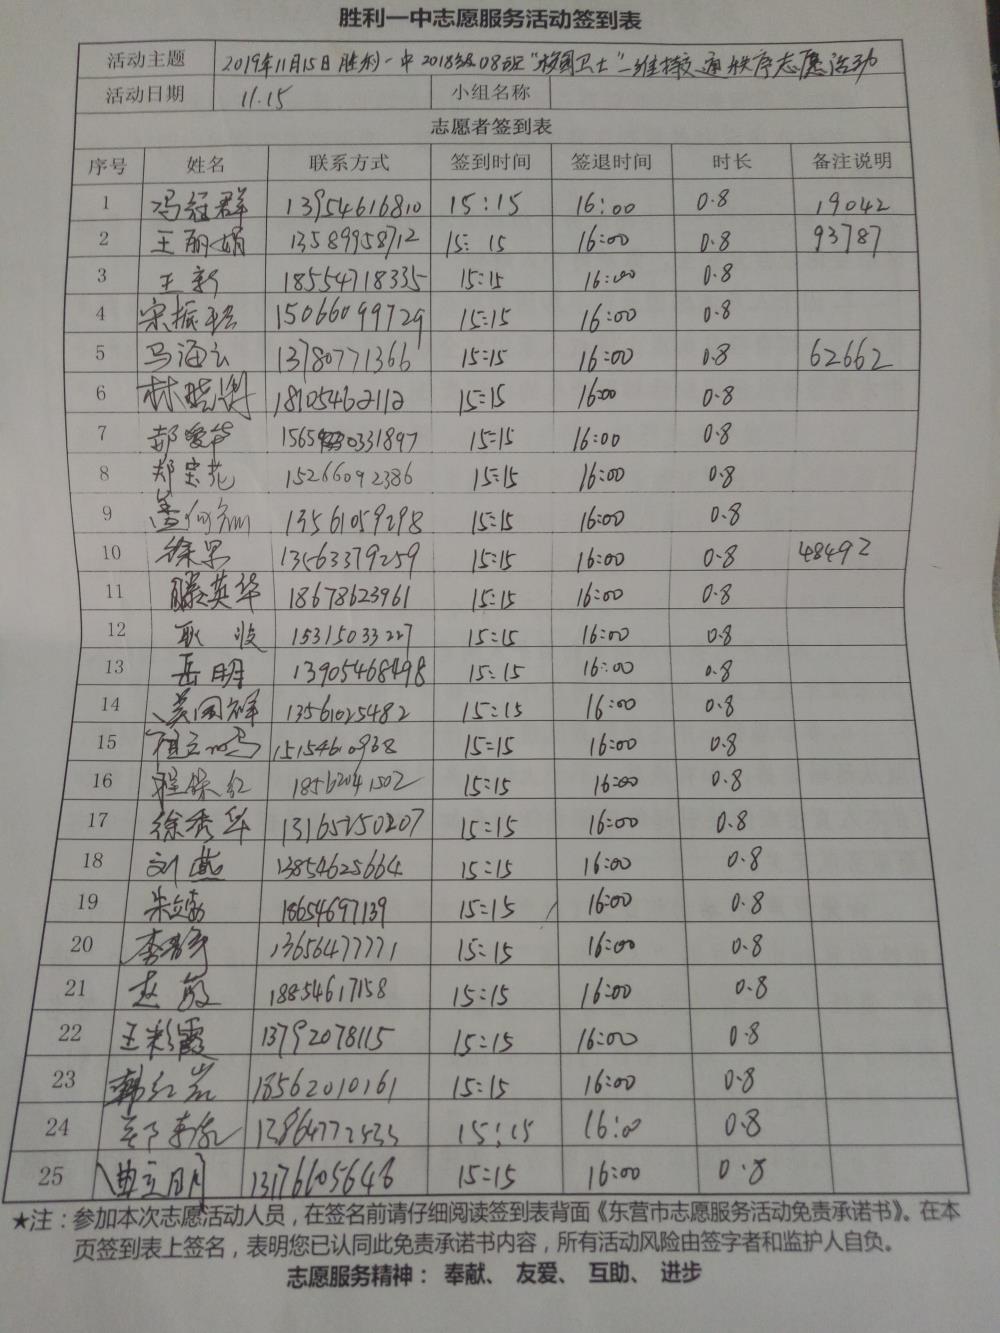 胜利一中志愿服务活动签到表
活动主题 2019年11月15日胜利一中2018级08班"校园卫士"—维持交通秩序志愿活动
活动日期 11.15 小组名称
志愿者签到表
序号 姓名 联系方式 签到时间 签退时间 时长 备注说明
1 冯冠群 13954616810 15:15 16:00 0.8 19042
2 王丽娟 13589958712 15:15 16:00 0.8 93787
3 王新 18554718335 15:15 16:00 0.8
4 宋振 15066099729 15:15 16:00 0.8
5 马海云 13780771366 15:15 16:00 0.8 62662
6 林晓 18105462112 15:15 16:00 0.8
7 郝爱华 15:15 16:00 0.8
8 郑宝花 15266092386 15:15 16:00 0.8
9 13561059298 15:15 16:00 0.8
10 徐 13563379259 15:15 16:00 0.8 48492
11 滕英华 18678623961 15:15 16:00 0.8
12 耿 15315033227 15:15 16:00 0.8
13 岳明 13905468498 15:15 16:00 0.8
14 吴国祥 13561025482 15:15 16:00 0.8
15 15154610938 15:15 16:00 0.8
16 程保红 18562041502 15:15 16:00 0.8
17 徐秀华 13165250207 15:15 16:00 0.8
18 刘燕 13854625664 15:15 16:00 0.8
19 朱 18654697139 15:15 16:00 0.8
20 李 13656477771 15:15 16:00 0.8
21 赵 18854617158 15:15 16:00 0.8
22 王彩霞 13792078115 15:15 16:00 0.8
23 韩红岩 18562010161 15:15 16:00 0.8
24 15:15 16:00 0.8
25 曲立明 13176605648 15:15 16:00 0.8
★注：参加本次志愿活动人员，在签名前请仔细阅读签到表背面《东营市志愿服务活动免责承诺书》。在本
页签到表上签名，表明您已认同此免责承诺书内容，所有活动风险由签字者和监护人自负。
志愿服务精神： 奉献、 友爱、 互助、 进步